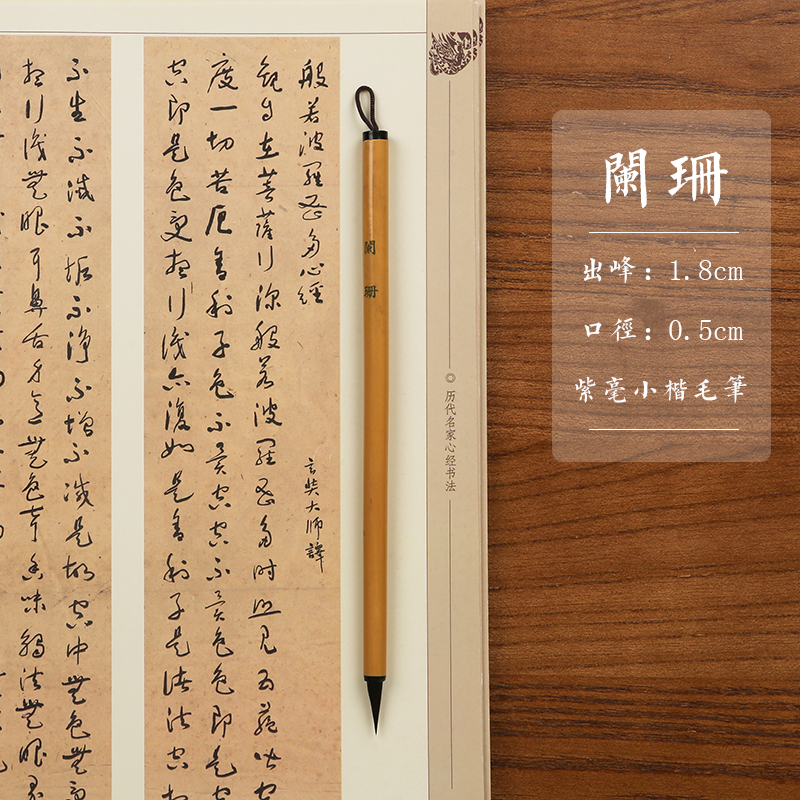 闌珊
出峰：1.8cm
口徑：0.5cm
紫毫小楷毛筆
历代名家心经书法
闌珊
般若波羅蜜多心經
玄奘大师譯
觀自在菩薩行深般若波羅蜜多時照見五蘊皆空
度一切苦厄舍利子色不異空空不異色色即是空
空即是色受想行識亦復如是舍利子是諸法空相
不生不滅不垢不淨不增不減是故空中無色無受
想行識無眼耳鼻舌身意無色聲香味觸法無眼界